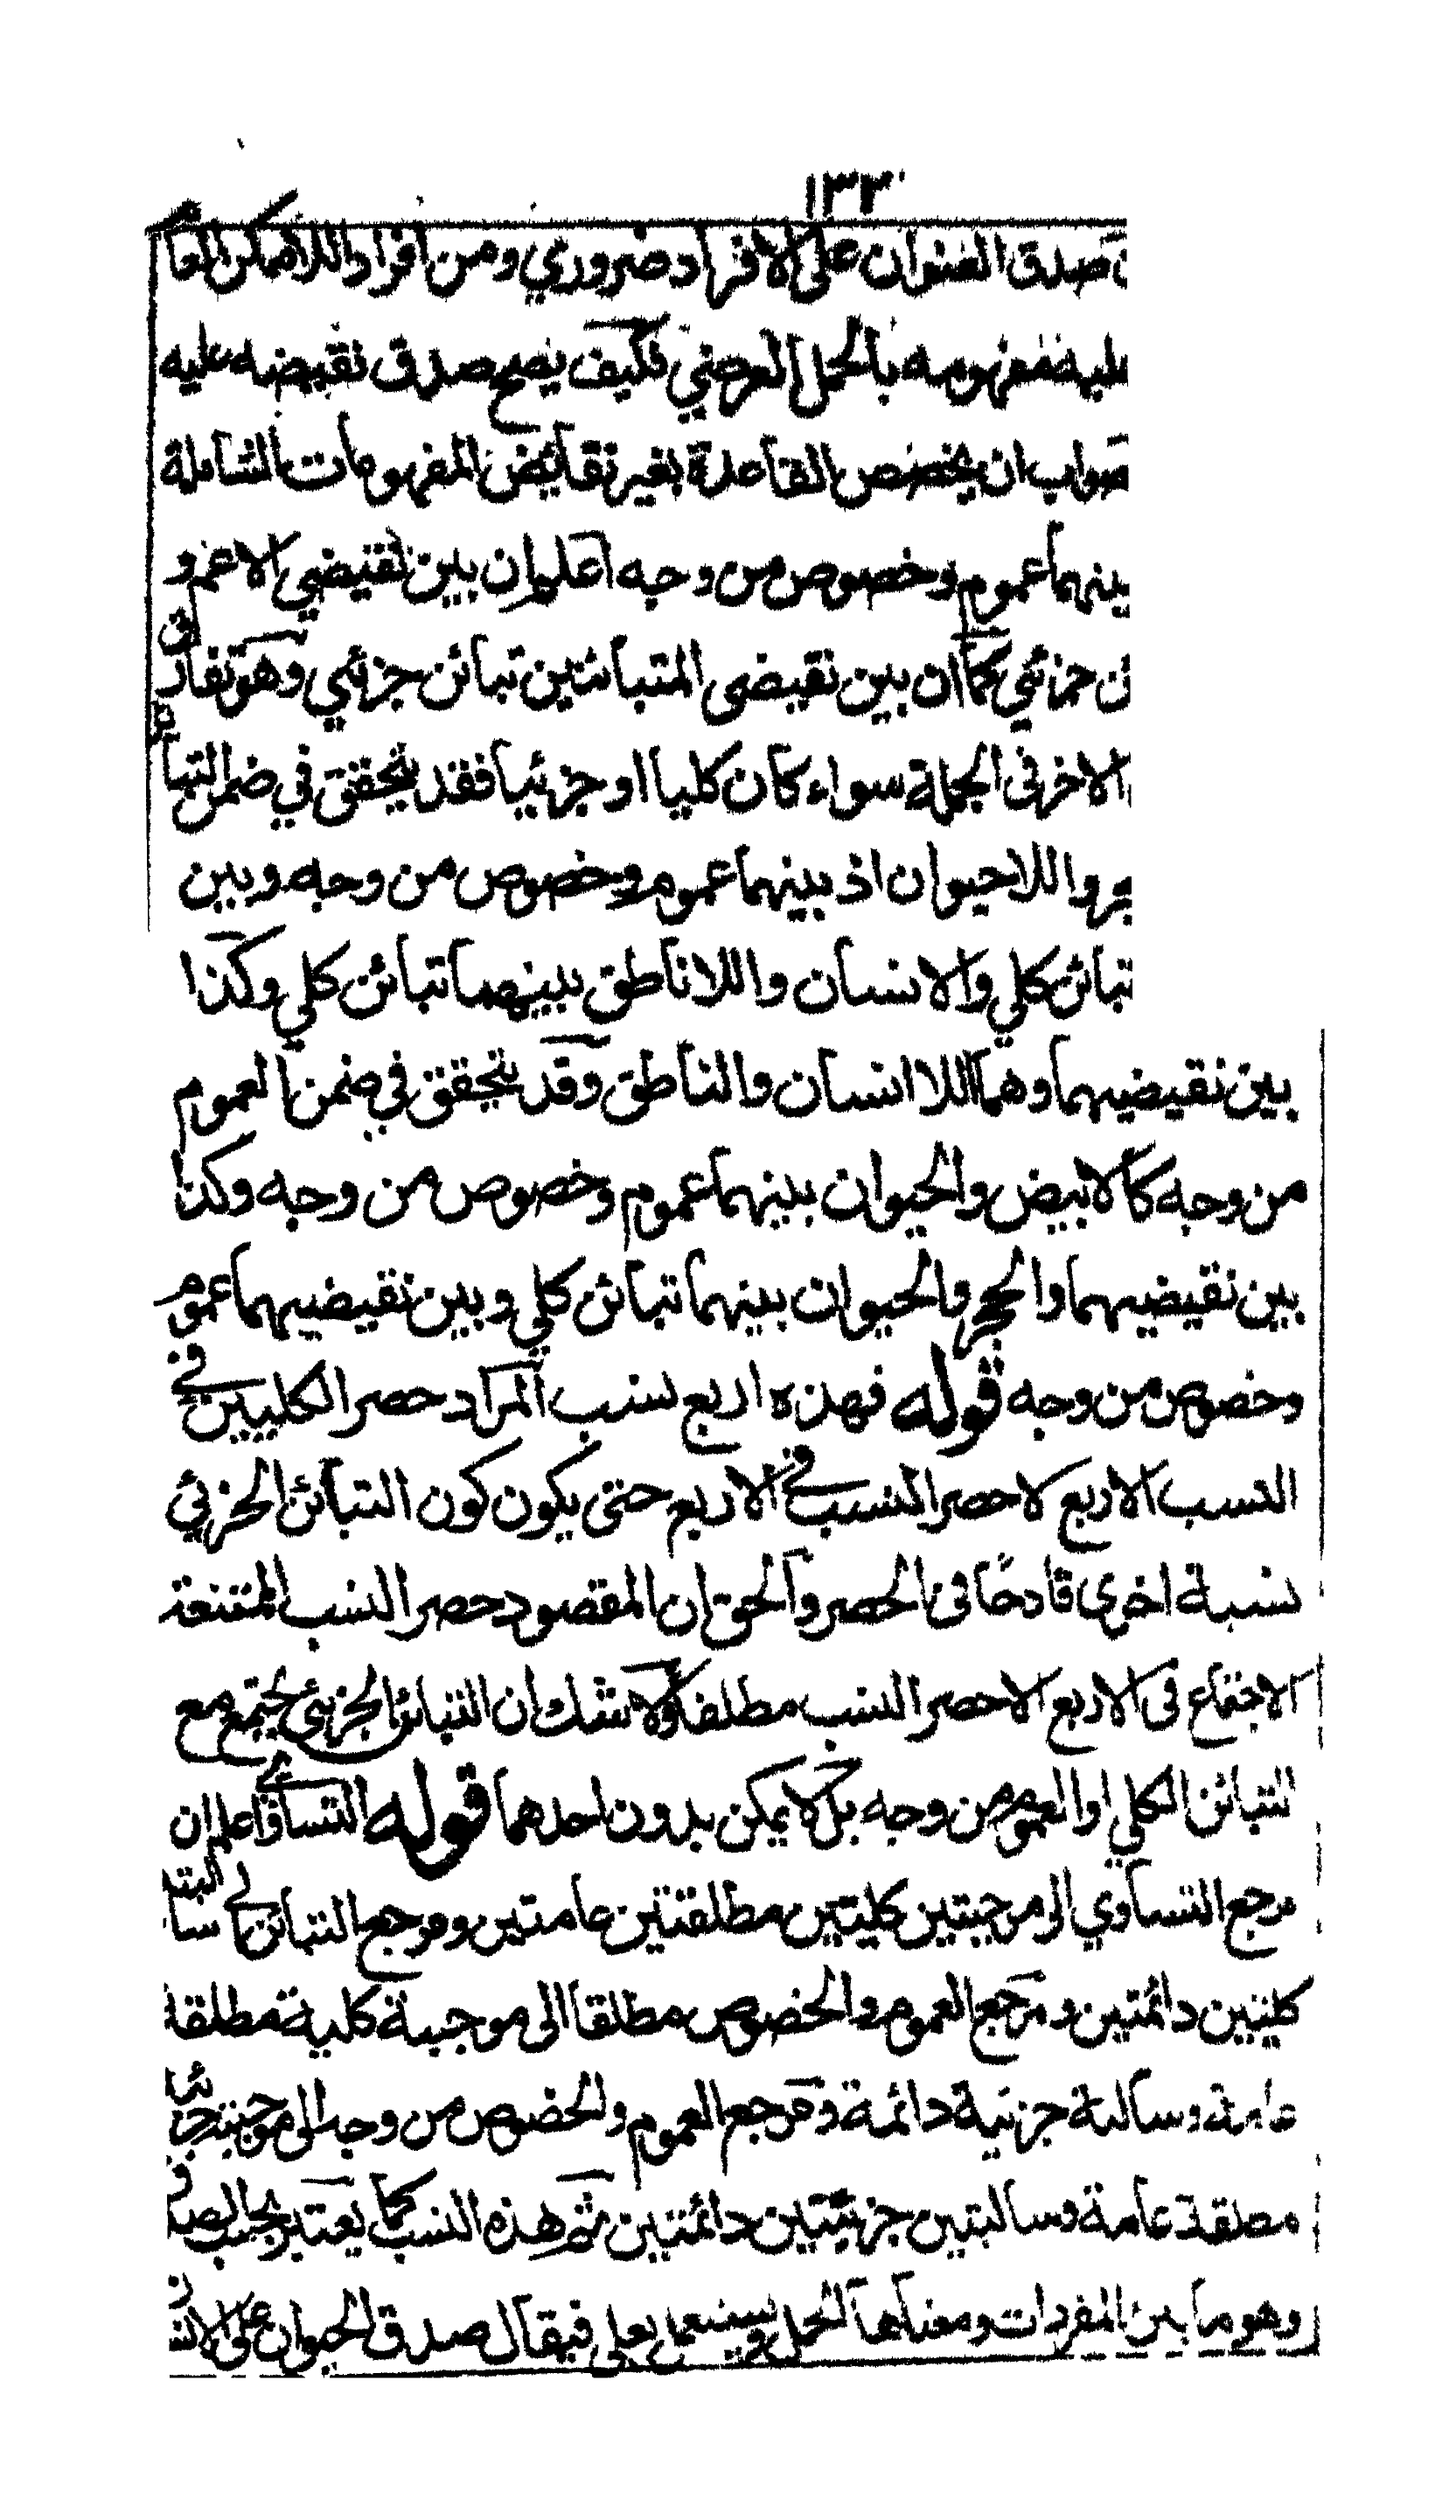 ١٣٣
صدق العنوان على الافراد ضروري ومن افراد اللا ممكن العام
مفهومه بالحمل العرضي فكيف يصح صدق نقيضه عليه
ان يخصص القاعدة بغير نقايض المفهومات الشاملة
عموم وخصوص من وجه اعلم ان بين نقيضي الاعم و
جزئي كما ان بين نقيضي المتبائنين تبائن جزئي وهو تفارق
الاخر في الجملة سواء كان كليا او جزئيا فقد يتحقق في ضمن التبائن
واللاحيوان اذ بينهما عموم وخصوص من وجه وبين
تبائن كلي والانسان واللاناطق بينهما تبائن كلي وكذا
بين نقيضيهما وهما اللاانسان والناطق وقد يتحقق في ضمن العموم
من وجه كالابيض والحيوان بينهما عموم وخصوص من وجه وكذا
بين نقيضيهما والحجر والحيوان بينهما تبائن كلي وبين نقيضيهما عموم
وخصوص من وجه قوله فهذه اربع نسب المراد حصر الكليين في
النسب الاربع لا حصر النسب في الاربع حتى يكون كون التبائن الجزئي
نسبة اخرى قادحا في الحصر والحق ان المقصود حصر النسب الممتنعة
الاجتماع في الاربع لا حصر النسب مطلقا ولا شك ان التبائن الجزئي يجتمع مع
التبائن الكلي او العموم من وجه بل لا يمكن بدون احدهما قوله التساوي اعلم ان
مرجع التساوي الى موجبتين كليتين مطلقتين عامتين ومرجع التبائن الى سالبتين
كليتين دائمتين ومرجع العموم والخصوص مطلقا الى موجبة كلية مطلقة
عامة وسالبة جزئية دائمة ومرجع العموم والخصوص من وجه الى موجبة جزئية
مطلقة عامة وسالبتين جزئيتين دائمتين ثم هذه النسب كما يعتبر بحسب الصدق
وهو ما بين المفردات ومعناها الحمل ويستعمل بعلى فيقال صدق الحيوان على الانسان